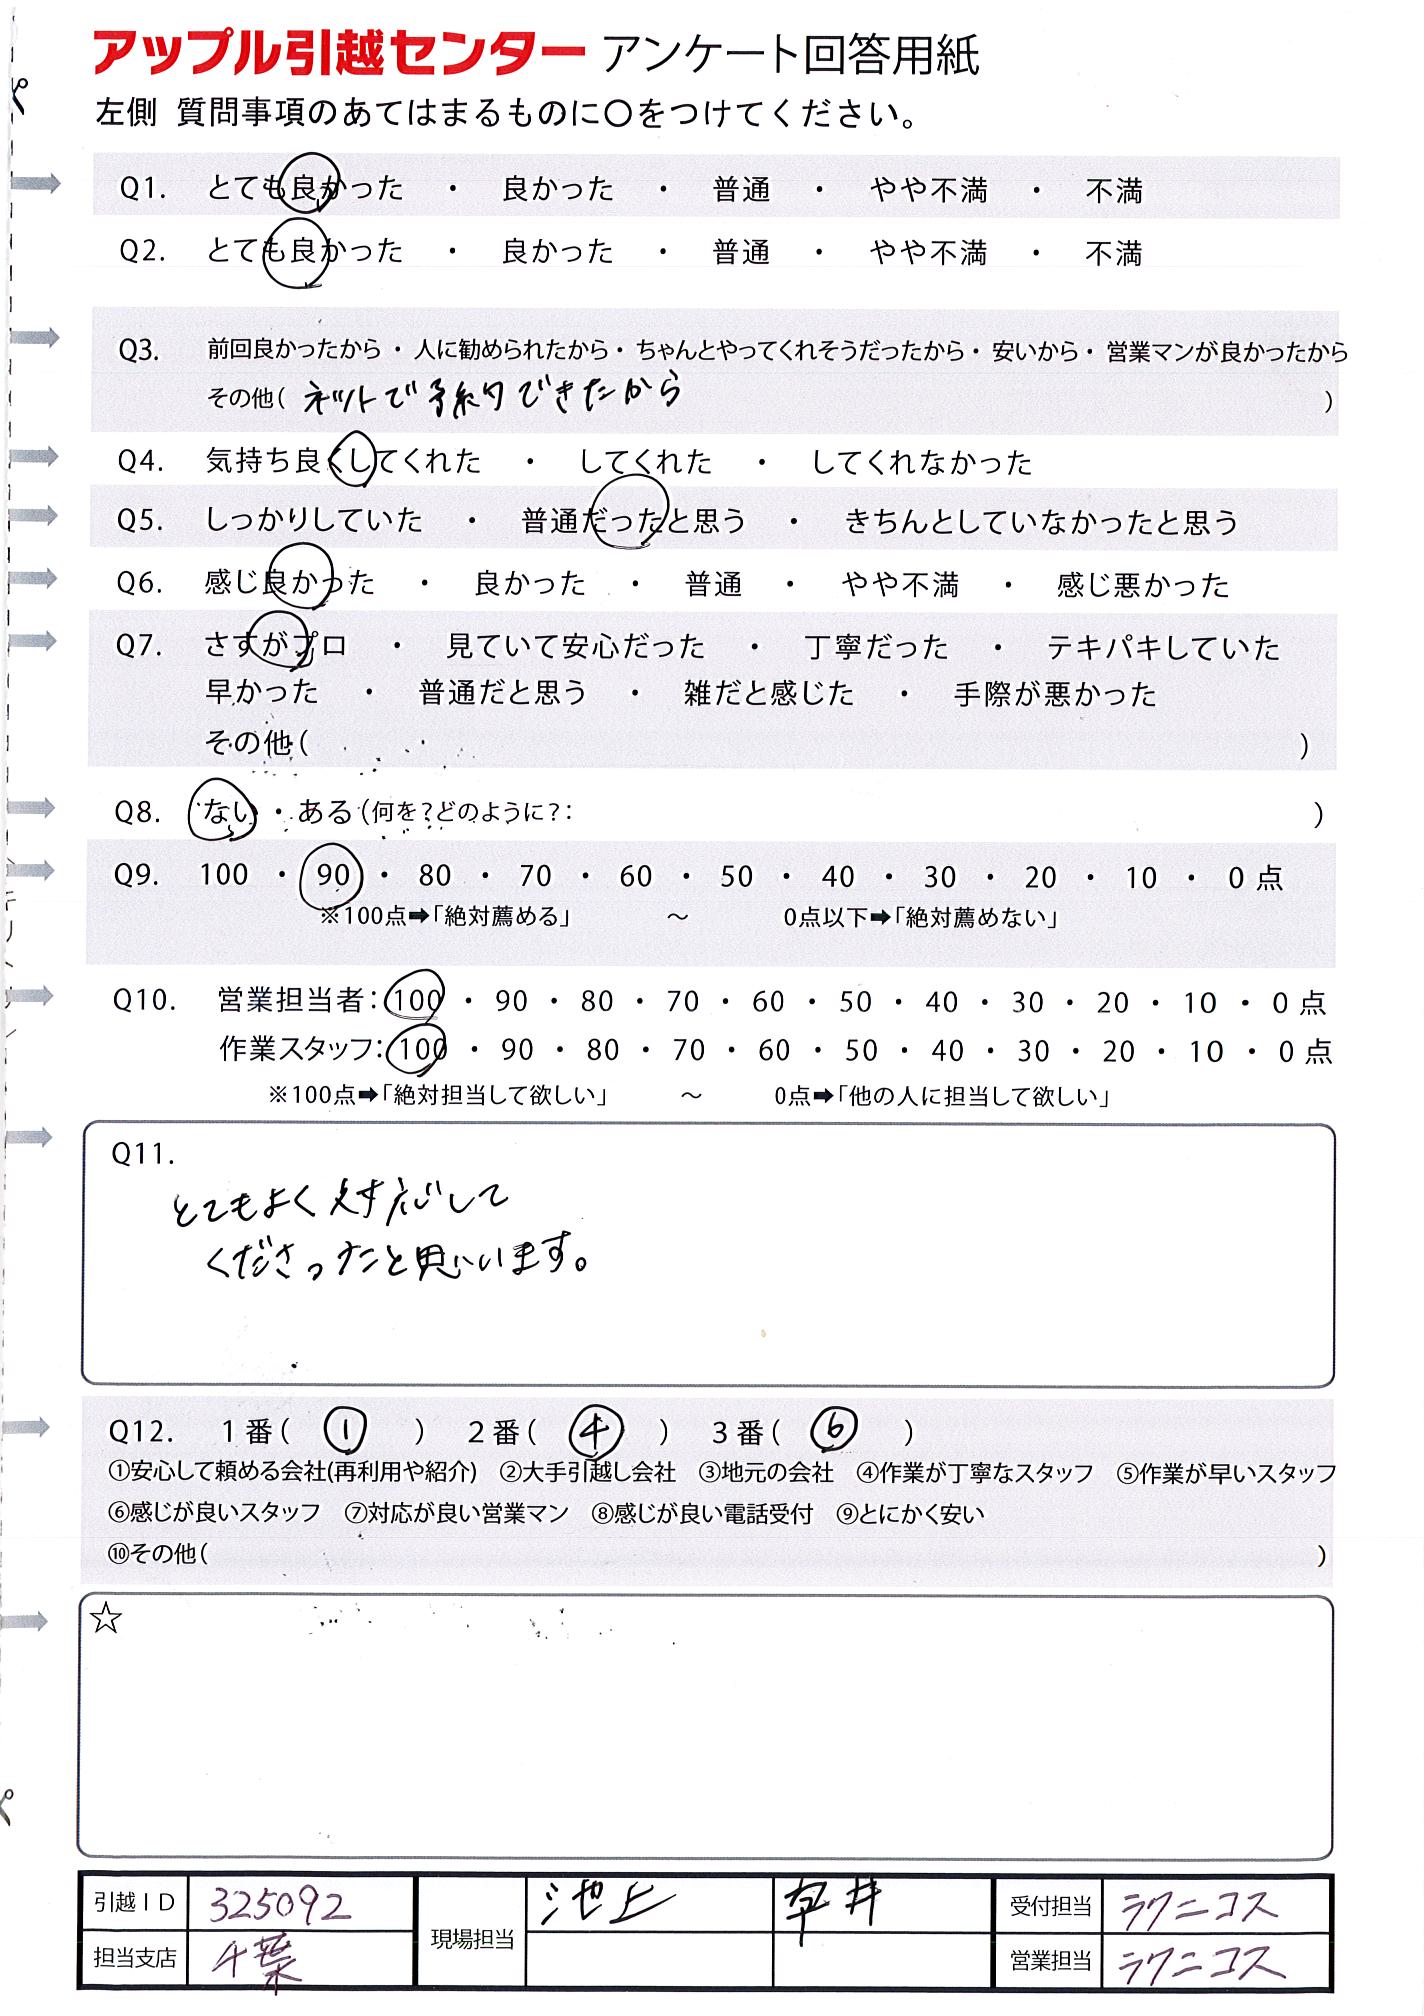 アップル引越センター アンケート回答用紙
左側 質問事項のあてはまるものに〇をつけてください。
Q1. とても良かった ・ 良かった ・ 普通 ・ やや不満 ・ 不満
Q2. とても良かった ・ 良かった ・ 普通 ・ やや不満 ・ 不満
Q3. 前回良かったから ・ 人に勧められたから ・ ちゃんとやってくれそうだったから ・ 安いから ・ 営業マンが良かったから
その他( ネットで予約できたから )
Q4. 気持ち良くしてくれた ・ してくれた ・ してくれなかった
Q5. しっかりしていた ・ 普通だったと思う ・ きちんとしていなかったと思う
Q6. 感じ良かった ・ 良かった ・ 普通 ・ やや不満 ・ 感じ悪かった
Q7. さすがプロ ・ 見ていて安心だった ・ 丁寧だった ・ テキパキしていた
早かった ・ 普通だと思う ・ 雑だと感じた ・ 手際が悪かった
その他( )
Q8. ない ・ ある(何を?どのように?: )
Q9. 100 ・ 90 ・ 80 ・ 70 ・ 60 ・ 50 ・ 40 ・ 30 ・ 20 ・ 10 ・ 0 点
※100点➡「絶対薦める」 ～ 0点以下➡「絶対薦めない」
Q10. 営業担当者: 100 ・ 90 ・ 80 ・ 70 ・ 60 ・ 50 ・ 40 ・ 30 ・ 20 ・ 10 ・ 0 点
作業スタッフ: 100 ・ 90 ・ 80 ・ 70 ・ 60 ・ 50 ・ 40 ・ 30 ・ 20 ・ 10 ・ 0 点
※100点➡「絶対担当して欲しい」 ～ 0点➡「他の人に担当して欲しい」
Q11.
とてもよく対応して
くださったと思います。
Q12. 1番( ① ) 2番( ④ ) 3番( ⑥ )
①安心して頼める会社(再利用や紹介) ②大手引越し会社 ③地元の会社 ④作業が丁寧なスタッフ ⑤作業が早いスタッフ
⑥感じが良いスタッフ ⑦対応が良い営業マン ⑧感じが良い電話受付 ⑨とにかく安い
⑩その他( )
☆
引越ID 325092 現場担当 池上 平井 受付担当 ラクニコス
担当支店 千葉 営業担当 ラクニコス